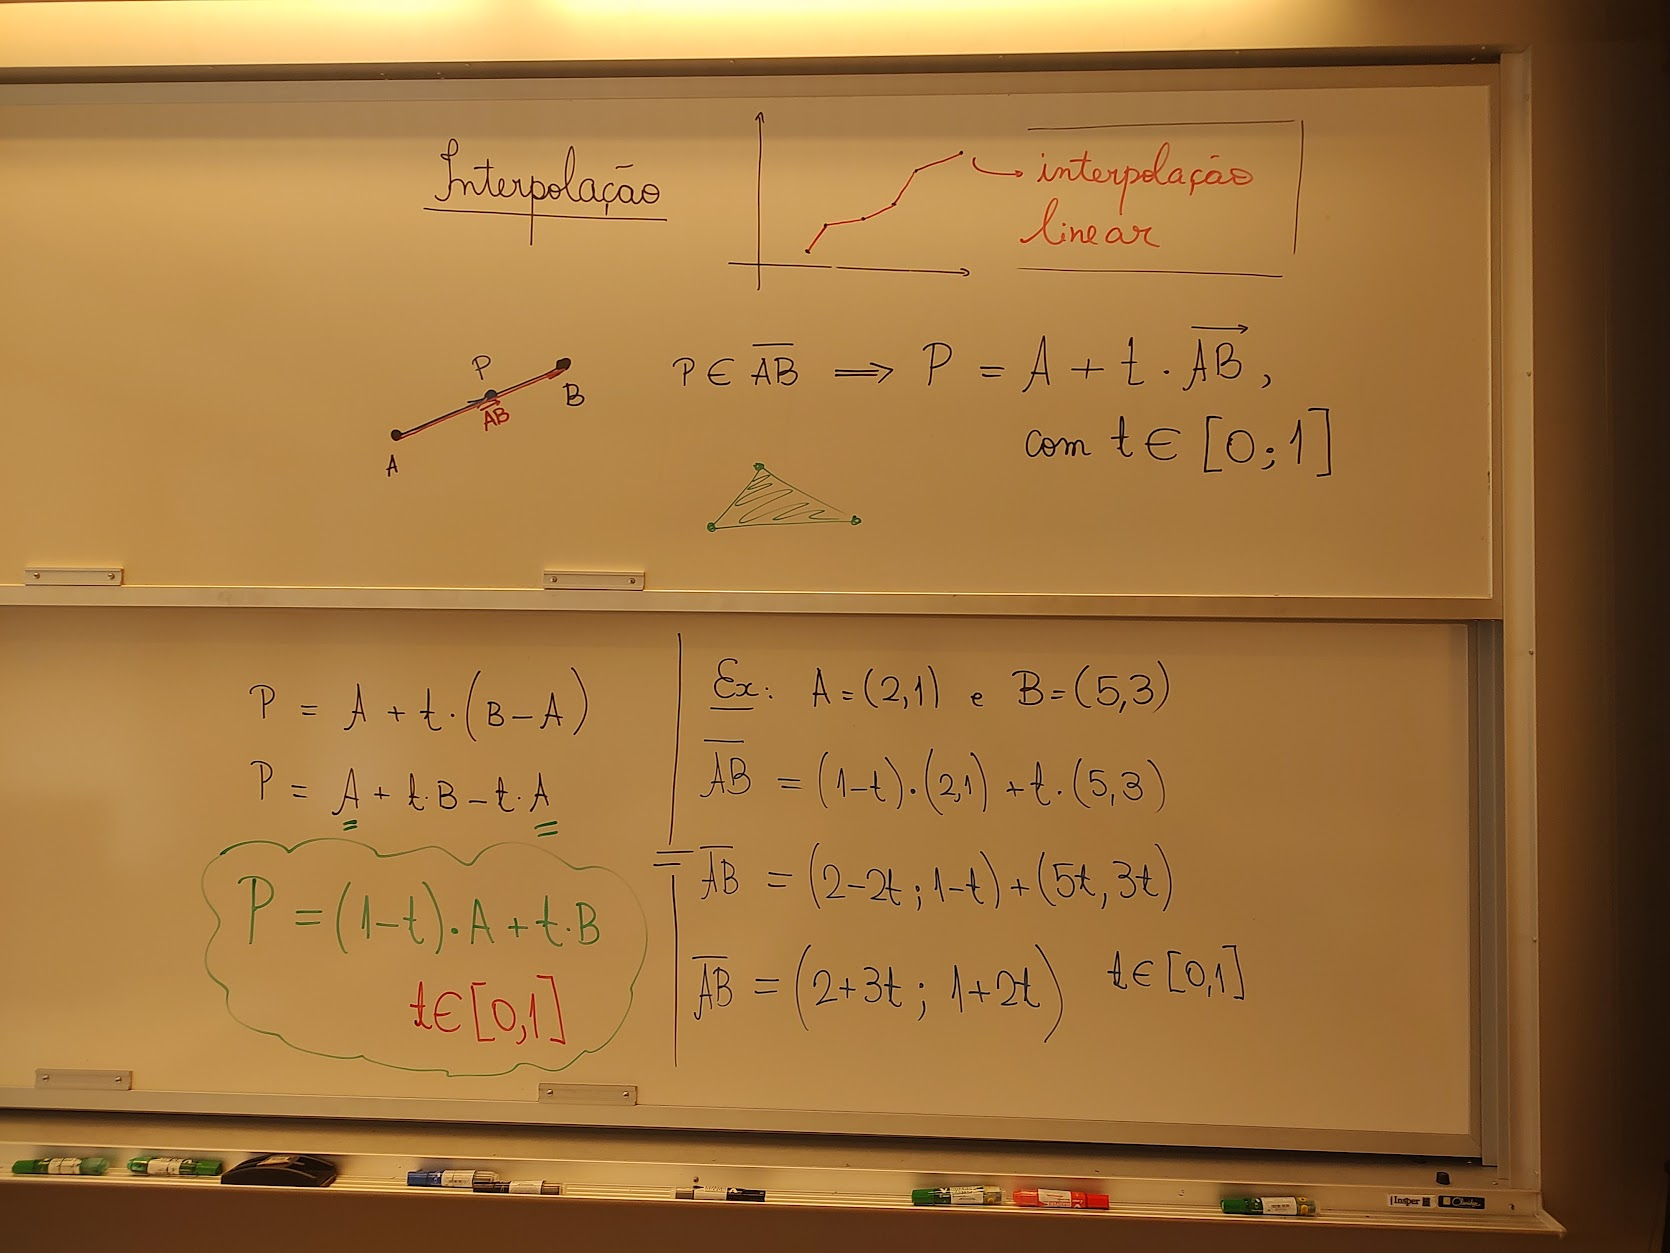 Interpolação
interpolação
linear
P
B
AB
A
P ∈ AB ⟹ P = A + t · AB,
com t ∈ [0;1]
P = A + t·(B−A)
P = A + t·B − t·A
P = (1−t)·A + t·B
t∈[0,1]
Ex: A=(2,1) e B=(5,3)
AB = (1−t)·(2,1) + t·(5,3)
AB = (2−2t ; 1−t) + (5t, 3t)
AB = (2+3t ; 1+2t) t∈[0,1]
Insper